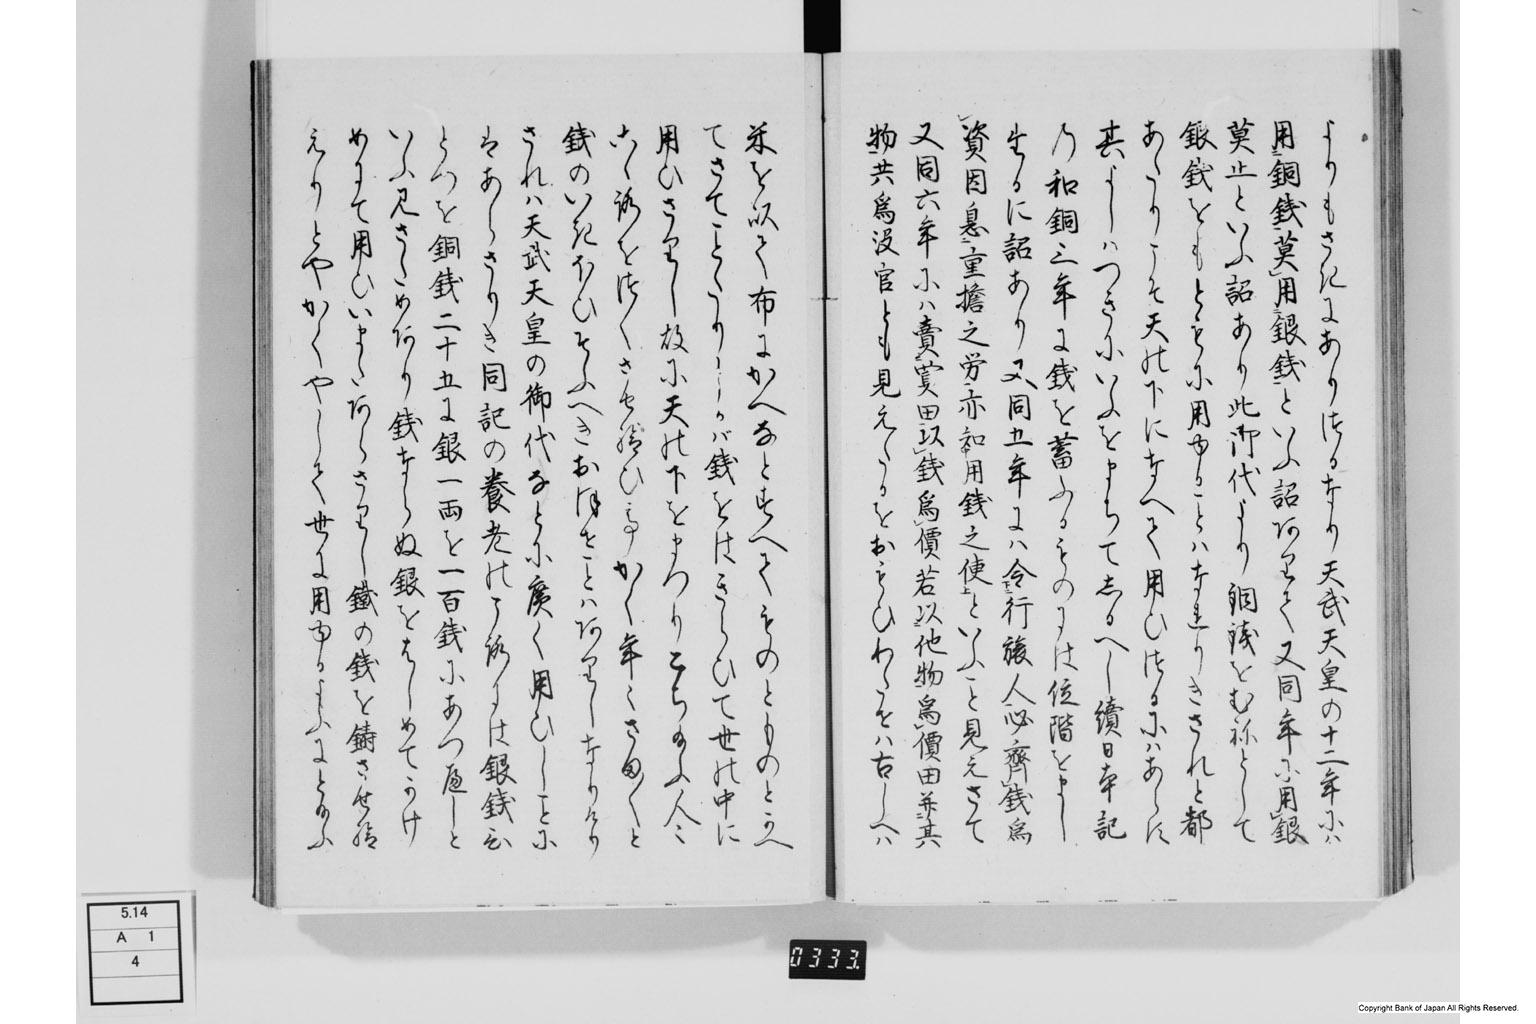 よりもさきにありけるなり天武天皇の十二年にハ
用銅銭莫用銀銭といふ詔ありて又同年に用銀
莫止といふ詔あり此御代より銅銭をむねとして
銀銭をもともに用ゆることハなれりきされと都
あたりこそ天の下になへて用ひけるにハあらす
其よしハつきにいふをまちてしるへし續日本記
乃和銅三年に銭を蓄ふるものには位階をまし
たるに詔あり又同五年にハ令行旅人必齊銭為
資因息重擔之労亦知用銭之便といふこと見えさて
又同六年にハ賣買田以銭為價若以他物為價田并其
物共為没官とも見えたるをおもひわたせハ古しへハ
米を以て布にかへなとすへてものとものとかへ
てさてことたりしかバ銭をはきらひて世の中に
用ひさりし故に天の下をまつりこち給ふ人々
こゝろをけくさせ給ひて かく年々さまくと
銭のいきおひそふへきおほせことハありしなりけり
されハ天武天皇の御代なとに廣く用ひしことに
はあらさりき同記の養老のころには銀銭ひ
とつを銅銭二十五に銀一両を一百銭にあつへしと
いふ見さためあり銭ならぬ銀をはしめてつけ
めにて用ひいまたあらさりし鐵の銭を鋳させ給
えりとやかくやして世に用ゆるよふにとふ
5.14
A 1
4
0333.
Copyright Bank of Japan All Rights Reserved.